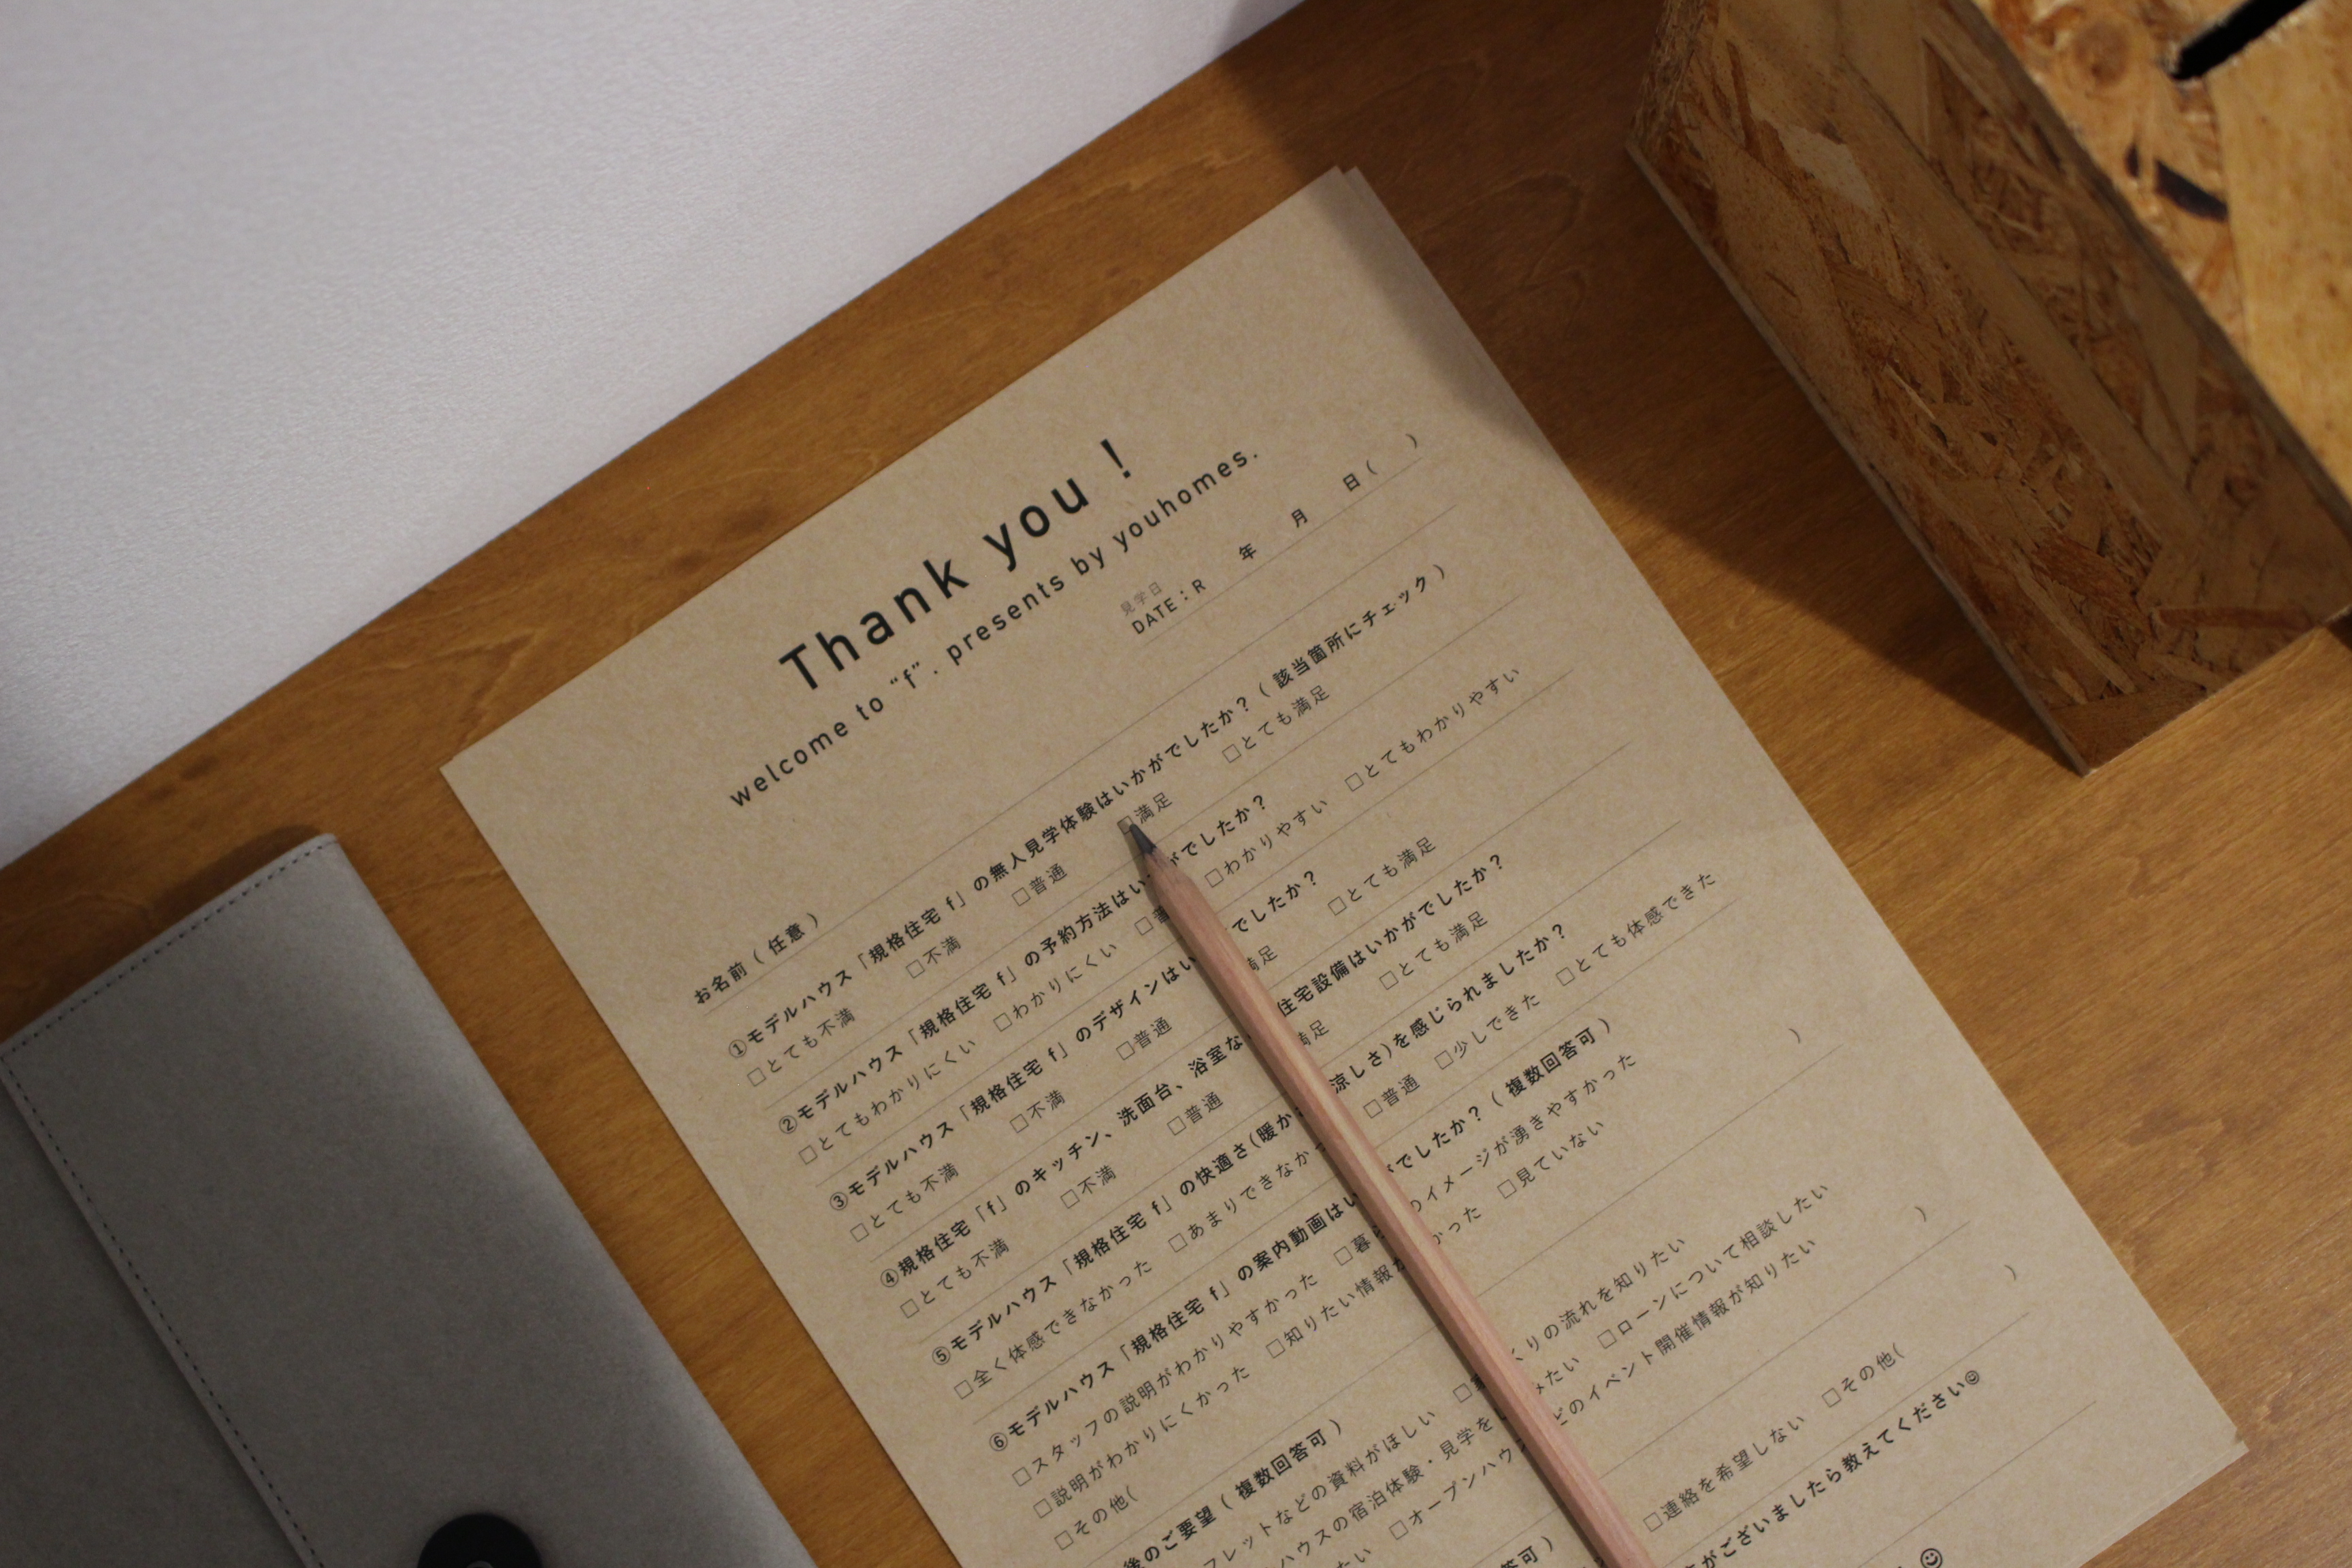 Thank you !
welcome to “f”. presents by youhomes.
見学日
DATE : R 年 月 日 ( )
お名前 ( 任意 )
①モデルハウス「規格住宅 f」の無人見学体験はいかがでしたか？ ( 該当箇所にチェック )
□とても不満 □不満 □普通 □満足 □とても満足
②モデルハウス「規格住宅 f」の予約方法はい がでしたか？
□とてもわかりにくい □わかりにくい □ □わかりやすい □とてもわかりやすい
③モデルハウス「規格住宅 f」のデザインはい でしたか？
□とても不満 □不満 □普通 足 □とても満足
④規格住宅「f」のキッチン、洗面台、浴室な 住宅設備はいかがでしたか？
□とても不満 □不満 □普通 足 □とても満足
⑤モデルハウス「規格住宅 f」の快適さ(暖か 涼しさ)を感じられましたか？
□全く体感できなかった □あまりできなか □普通 □少しできた □とても体感できた
⑥モデルハウス「規格住宅 f」の案内動画はい でしたか？ ( 複数回答可 )
□スタッフの説明がわかりやすかった □暮 のイメージが湧きやすかった
□説明がわかりにくかった □知りたい情報が かった □見ていない
□その他( )
後のご要望 ( 複数回答可 )
フレットなどの資料がほしい □ くりの流れを知りたい
ハウスの宿泊体験・見学を みたい □ローンについて相談したい
たい □オープンハウ どのイベント開催情報が知りたい
)
答可 )
□連絡を希望しない □その他( )
がございましたら教えてください☺
☺